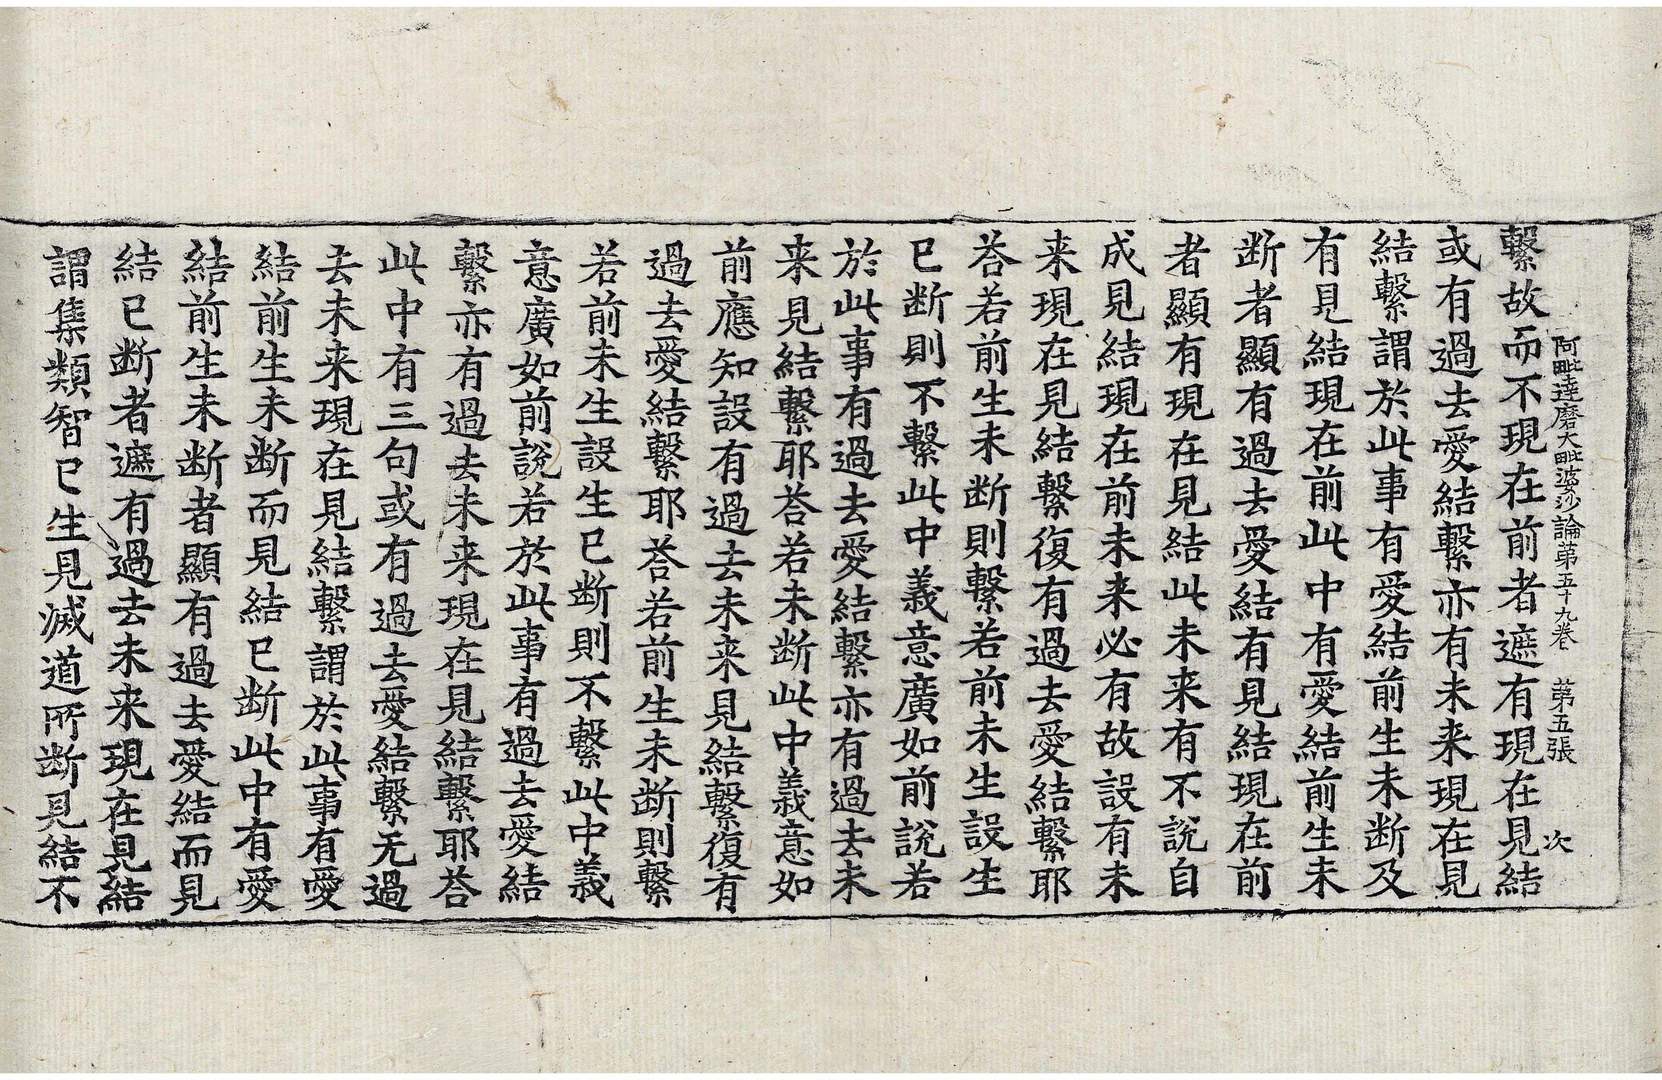 阿毗達磨大毗婆沙論第五十九卷　第五張　次
繫故而不現在前者遮有現在見結
或有過去愛結繫亦有未来現在見
結繫謂於此事有愛結前生未断及
有見結現在前此中有愛結前生未
断者顯有過去愛結有見結現在前
者顯有現在見結此未来有不說自
成見結現在前未来必有故設有未
来現在見結繫復有過去愛結繫耶
荅若前生未断則繫若前未生設生
已断則不繫此中義意廣如前說若
於此事有過去愛結繫亦有過去未
来見結繫耶荅若未断此中義意如
前應知設有過去未来見結繫復有
過去愛結繫耶荅若前生未断則繫
若前未生設生已断則不繫此中義
意廣如前說若於此事有過去愛結
繫亦有過去未来現在見結繫耶荅
此中有三句或有過去愛結繫无過
去未来現在見結繫謂於此事有愛
結前生未断而見結已断此中有愛
結前生未断者顯有過去愛結而見
結已断者遮有過去未来現在見結
謂集類智已生見滅道所断見結不